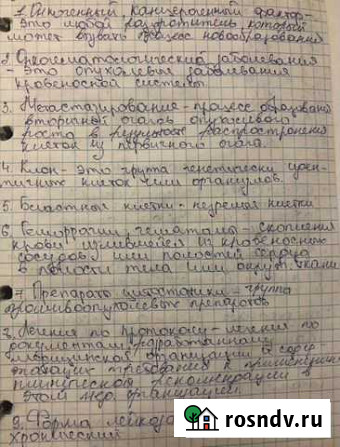 1. Онкогенный, канцерогенный фактор
- это любой раздражитель который
может вызвать процесс новообразования
2. Онкогематологические заболевания
- это опухолевые заболевания
кровеносной системы
3. Метастазирование - процесс образования
вторичного очагов опухолевого
роста в результате распространения
клеток из первичного очага.
4. Клон - это группа генетически идентичных клеток или организмов.
5. Бластные клетки - незрелые клетки
6. Геморрагии, гематомы - скопления
крови излившейся из кровеносных
сосудов или полостей сердца
в полости тела или окруж. ткани
7. Препараты цитостатики - группа
противоопухолевых препаратов
8. Лечение по протоколу - лечение по
документам, разработанному
медицинской организации
требования к применению
клинической рекомендации в
этом мед. организации
9. Форма лейкоза
хронический
rosndv.ru